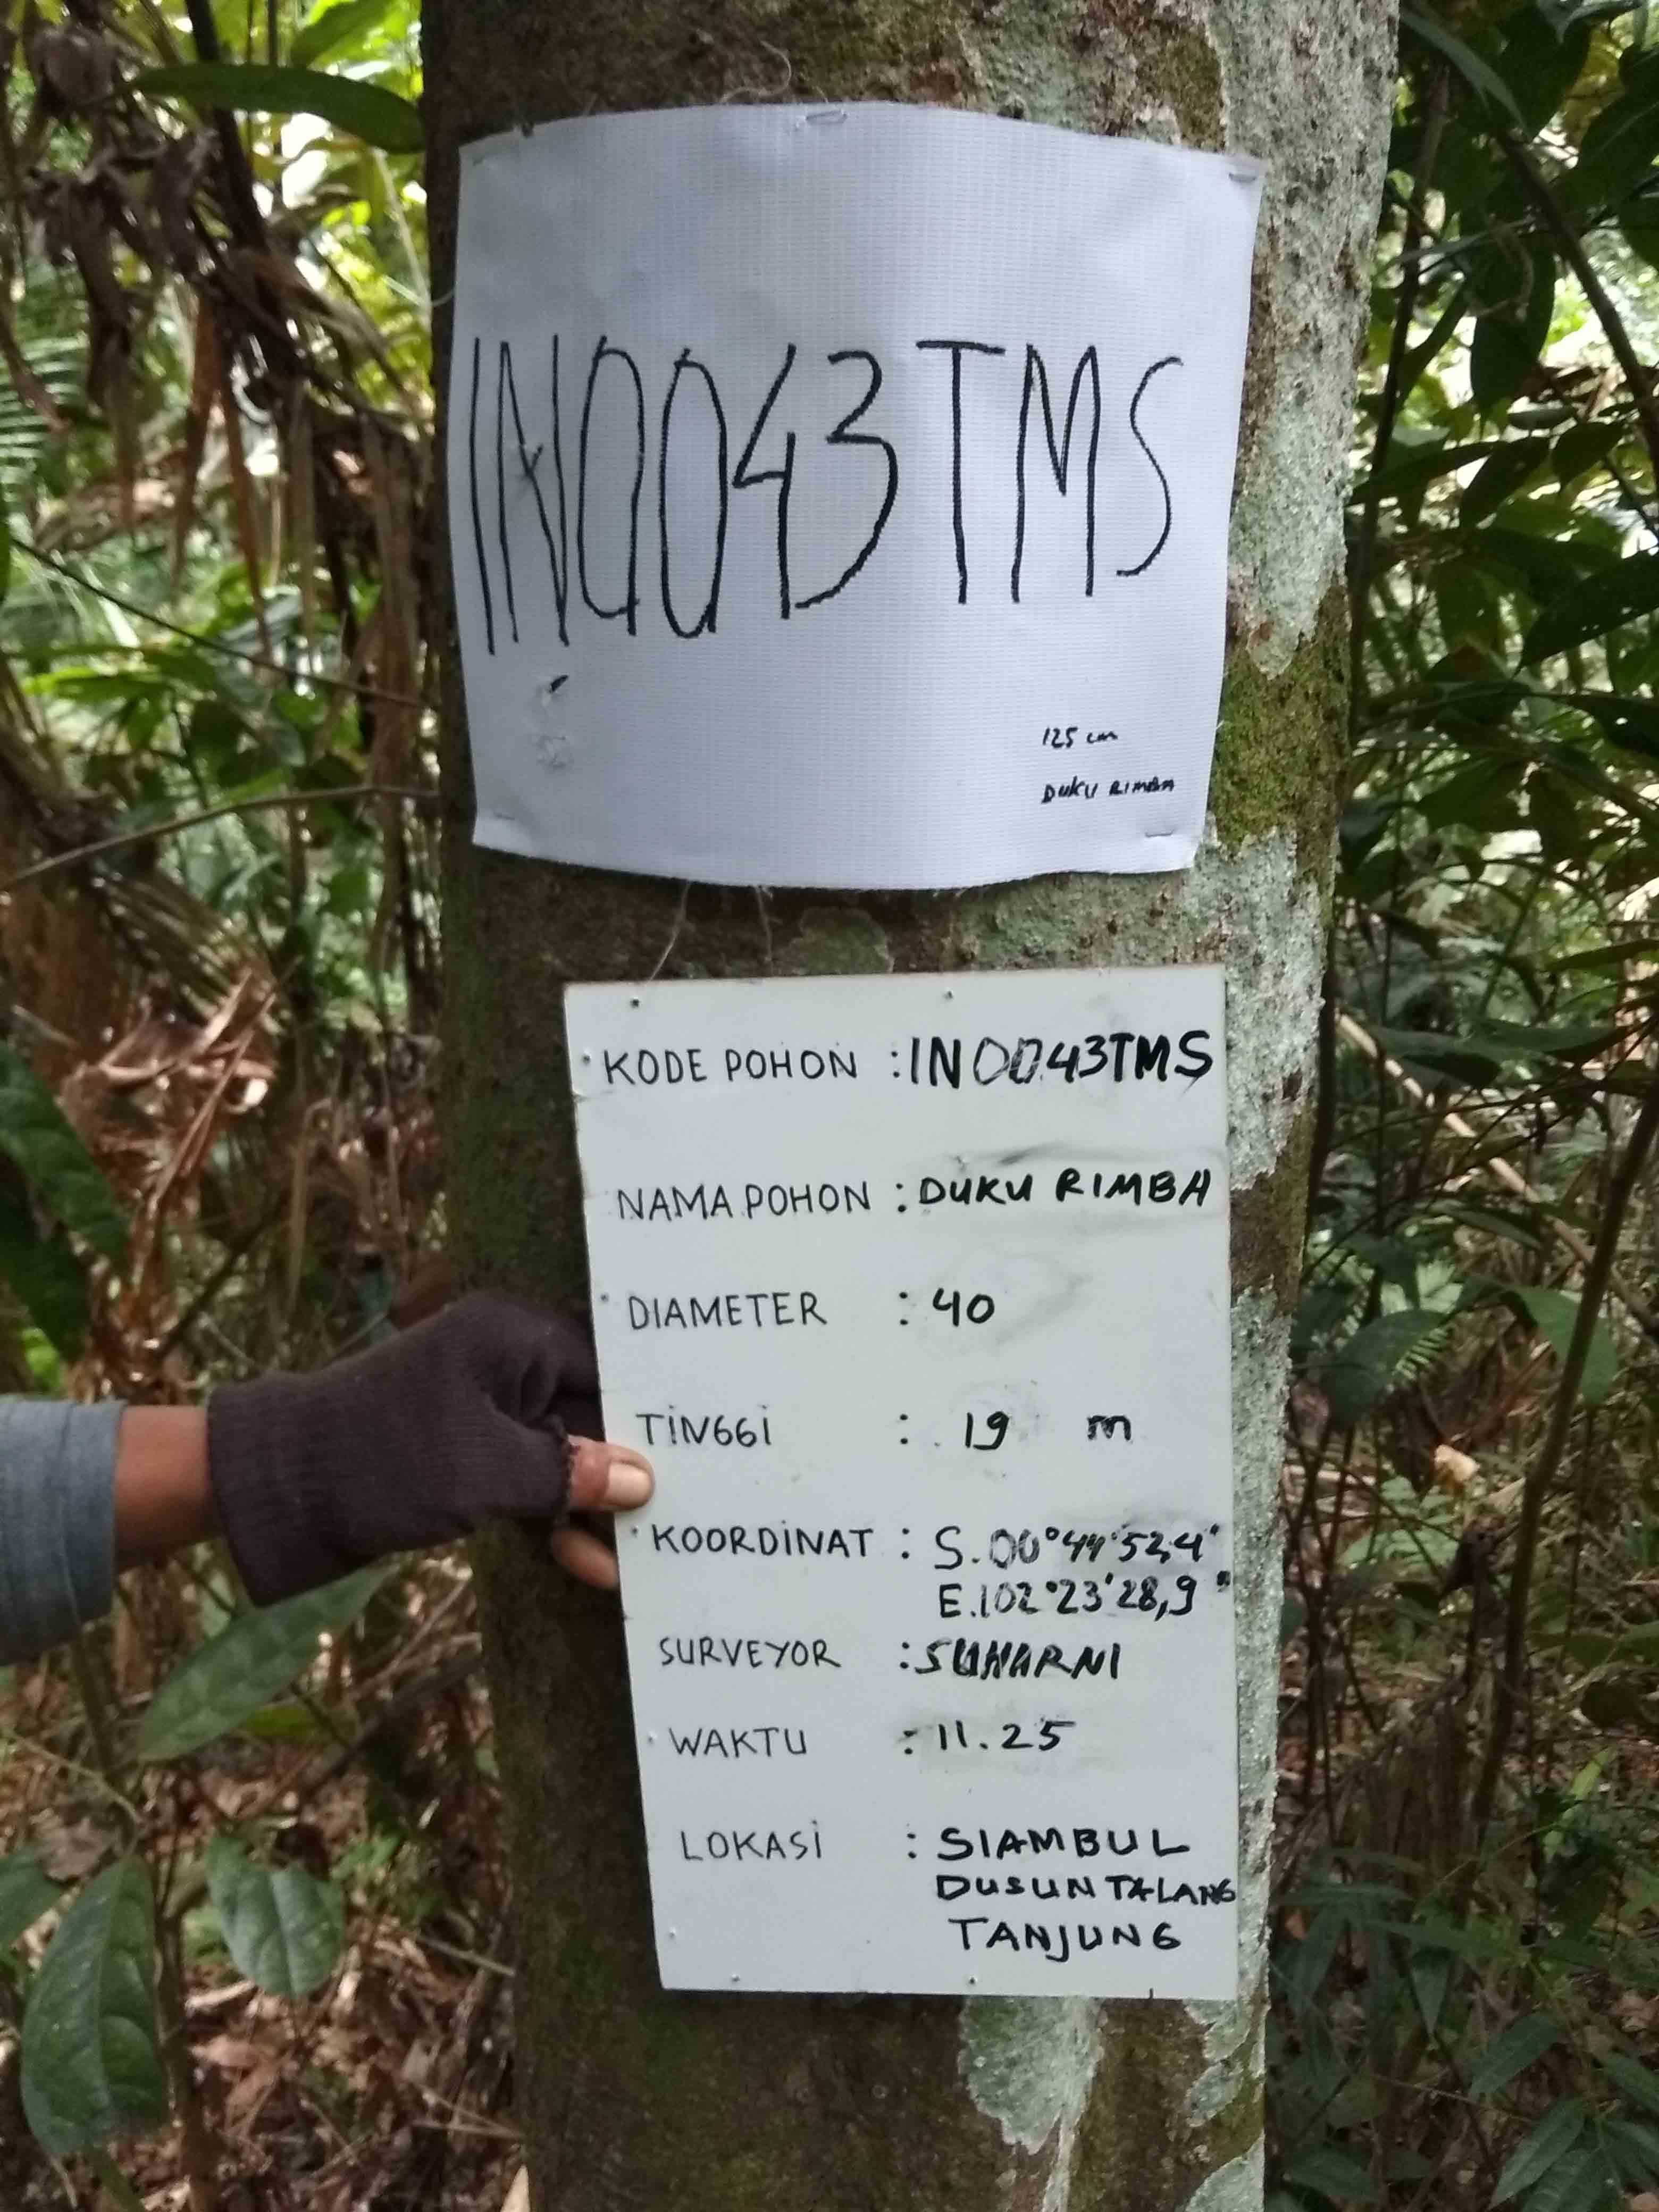 IN0043TMS
125 cm
DUKU RIMBA
KODE POHON : IN0043TMS
NAMA POHON : DUKU RIMBA
DIAMETER : 40
TiNGGi : 19 m
KOORDiNAT : S.00°44'52,4"
E.102°23'28,9"
SURVEYOR : SUHARNI
WAKTU : 11.25
LOKASi : SIAMBUL
DUSUN TALANG
TANJUNG